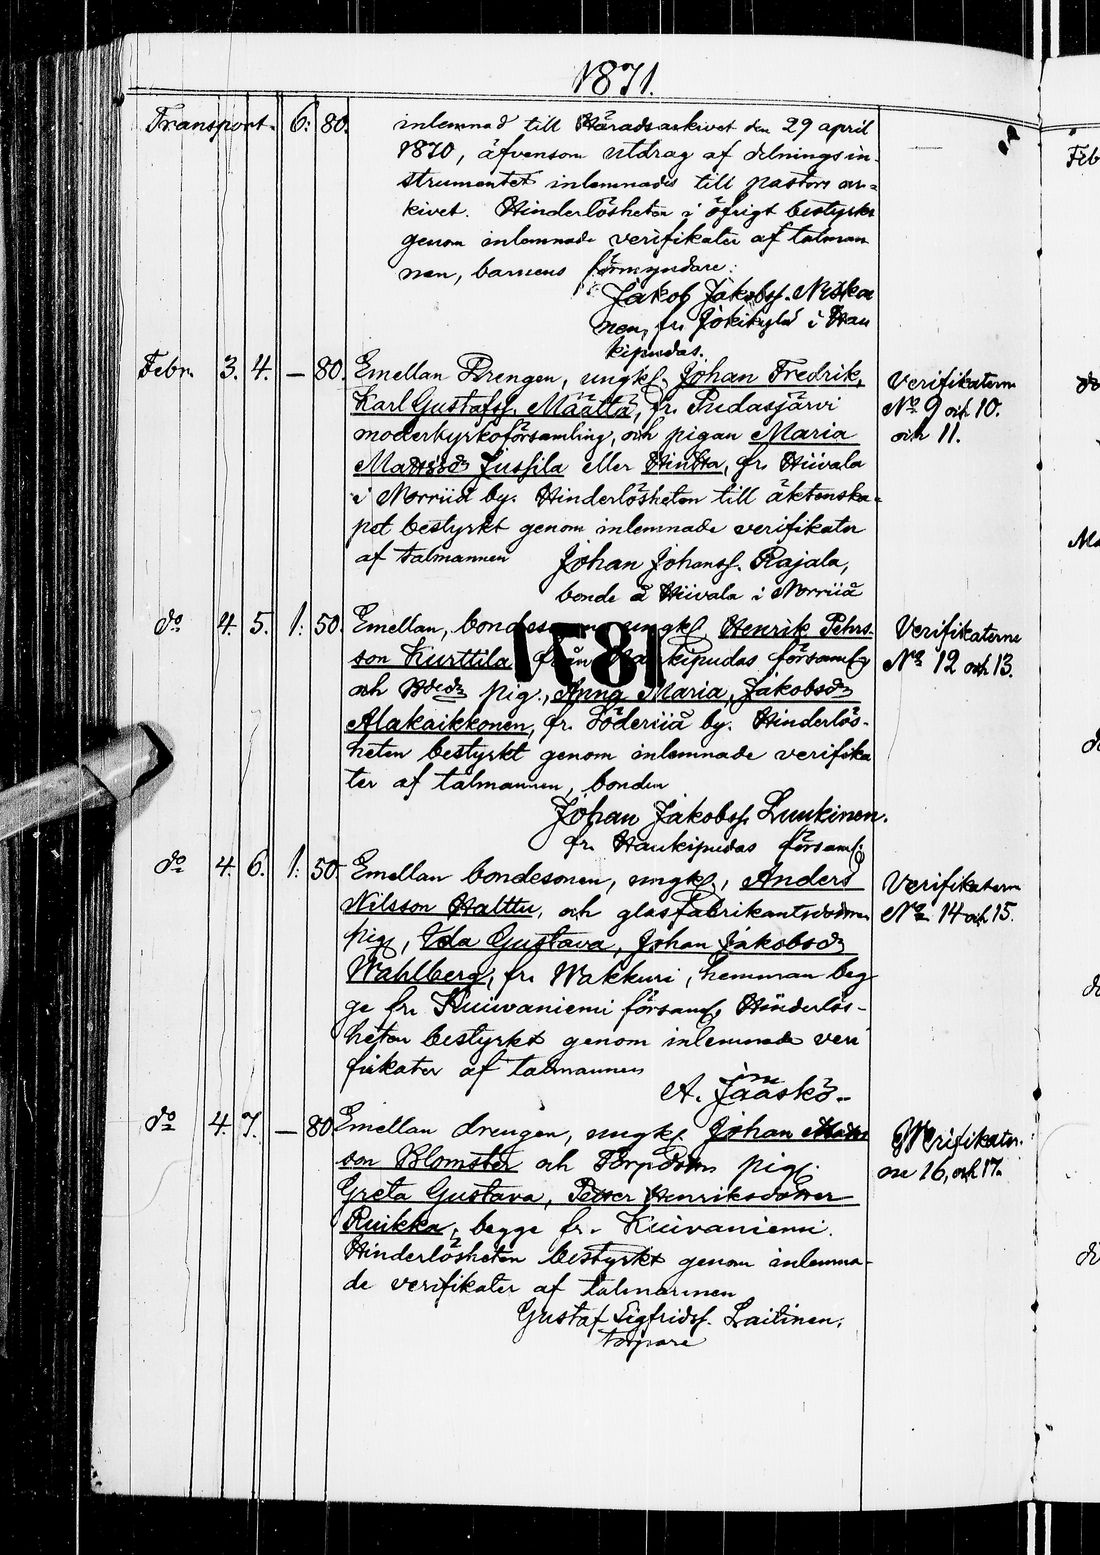 1871.
Transport. 6: 80.
inlemnad till Häradsarkivet den 29 april
1870, äfvensom utdrag af delningsin-
strumentet inlemnades till pastors ar-
kivet. Hinderlösheten i öfrigt bestyrkt
genom inlemnade verifikater af talman
nen, barnens förmyndare:
Jakob Jakobss. Niska
nen, fr. Jokikylä i Hau
kipudas.
Febr. 3. 4. — 80. Emellan Drengen, ungk. Johan Fredrik,
Karl Gustafss. Määttä, fr. Pudasjärvi
moderkyrkoförsamling, och pigan Maria
Mattsdr Jussila eller Hintta, fr. Hiivala
i Norriiå by. Hinderlösheten till äktenska-
pet bestyrkt genom inlemnade verifikater
af talmannen
Johan Johanss. Rajala,
bonde å Hiivala i Norriiå
Verifikaterne
No 9 och 10.
och 11.
do 4. 5. 1: 50. Emellan, bondesonen ungk. Henrik Pehrs-
son Kurttila från Haukipudas församlg
och pig., Anna Maria, Jakobsdr
Alakaikkonen, fr. Söderiiå by. Hinderlös-
heten bestyrkt genom inlemnade verifika
ter af talmannen, bonden
Johan Jakobss. Luukinen.
fr. Haukipudas församl.
Verifikaterne
No 12 och 13.
1871
do 4. 6. 1: 50. Emellan bondesonen, ungk., Anders
Nilsson Halttu, och glasfabrikantsdottren
pig., Ida Gustava, Johan Jakobsdr
Wahlberg, fr. Wakkuri, hemman beg
ge fr. Kuivaniemi församlg Hinderlös-
heten bestyrkt genom inlemnade veri
fikater af talmannen
A. Jääskö.
Verifikaterne
No 14 och 15.
do 4. 7. — 80. Emellan drengen, ungk. Johan Matts
son Blomster och Torpdottren pig.
Greta Gustava, Petter Henriksdotter
Ruikka, begge fr. Kuivaniemi.
Hinderlösheten bestyrkt genom inlemna-
de verifikater af talmannen
Gustaf Sigfridss. Laitinen,
torpare
Verifikater-
ne 16, och 17.